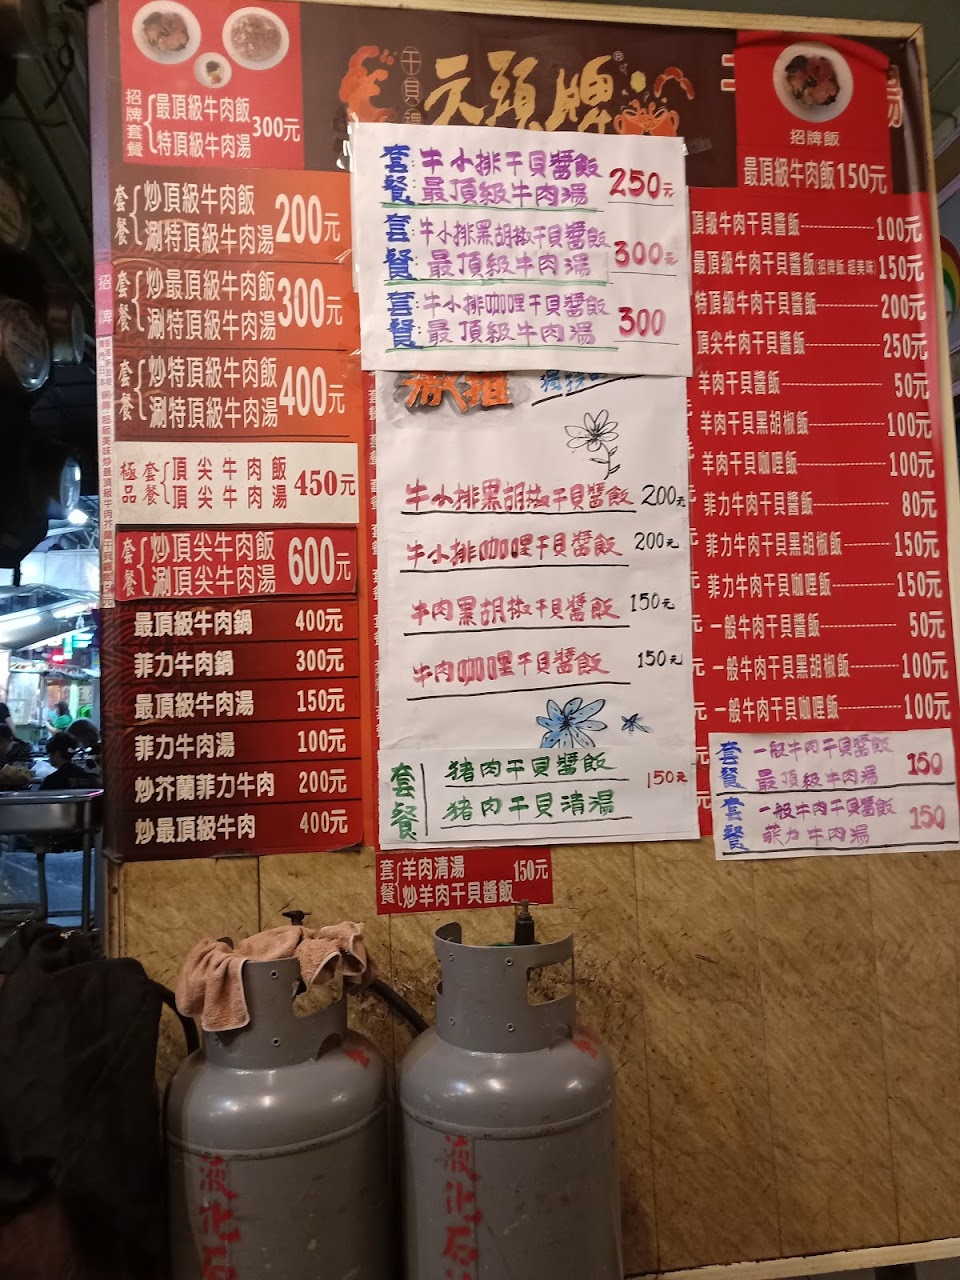 招牌套餐
最頂級牛肉飯
特頂級牛肉湯
300元
套餐
炒頂級牛肉飯
涮特頂級牛肉湯
200元
套餐
炒最頂級牛肉飯
涮特頂級牛肉湯
300元
套餐
炒特頂級牛肉飯
涮特頂級牛肉湯
400元
極品套餐
頂尖牛肉飯
頂尖牛肉湯
450元
套餐
炒頂尖牛肉飯
涮頂尖牛肉湯
600元
最頂級牛肉鍋 400元
菲力牛肉鍋 300元
最頂級牛肉湯 150元
菲力牛肉湯 100元
炒芥蘭菲力牛肉 200元
炒最頂級牛肉 400元
招牌
干貝
天頭牌®
套餐:
牛小排干貝醬飯
最頂級牛肉湯
250元
套餐:
牛小排黑胡椒干貝醬飯
最頂級牛肉湯
300元
套餐:
牛小排咖哩干貝醬飯
最頂級牛肉湯
300
牛小排黑胡椒干貝醬飯 200元
牛小排咖哩干貝醬飯 200元
牛肉黑胡椒干貝醬飯 150元
牛肉咖哩干貝醬飯 150元
套餐
豬肉干貝醬飯
豬肉干貝清湯
150元
套餐
羊肉清湯
炒羊肉干貝醬飯
150元
招牌飯
最頂級牛肉飯150元
頂級牛肉干貝醬飯 100元
最頂級牛肉干貝醬飯(招牌飯,超美味) 150元
特頂級牛肉干貝醬飯 200元
頂尖牛肉干貝醬飯 250元
羊肉干貝醬飯 50元
羊肉干貝黑胡椒飯 100元
羊肉干貝咖哩飯 100元
菲力牛肉干貝醬飯 80元
菲力牛肉干貝黑胡椒飯 150元
菲力牛肉干貝咖哩飯 150元
一般牛肉干貝醬飯 50元
一般牛肉干貝黑胡椒飯 100元
一般牛肉干貝咖哩飯 100元
套餐
一般牛肉干貝醬飯
最頂級牛肉湯
150
套餐
一般牛肉干貝醬飯
菲力牛肉湯
150
液化石
液化石